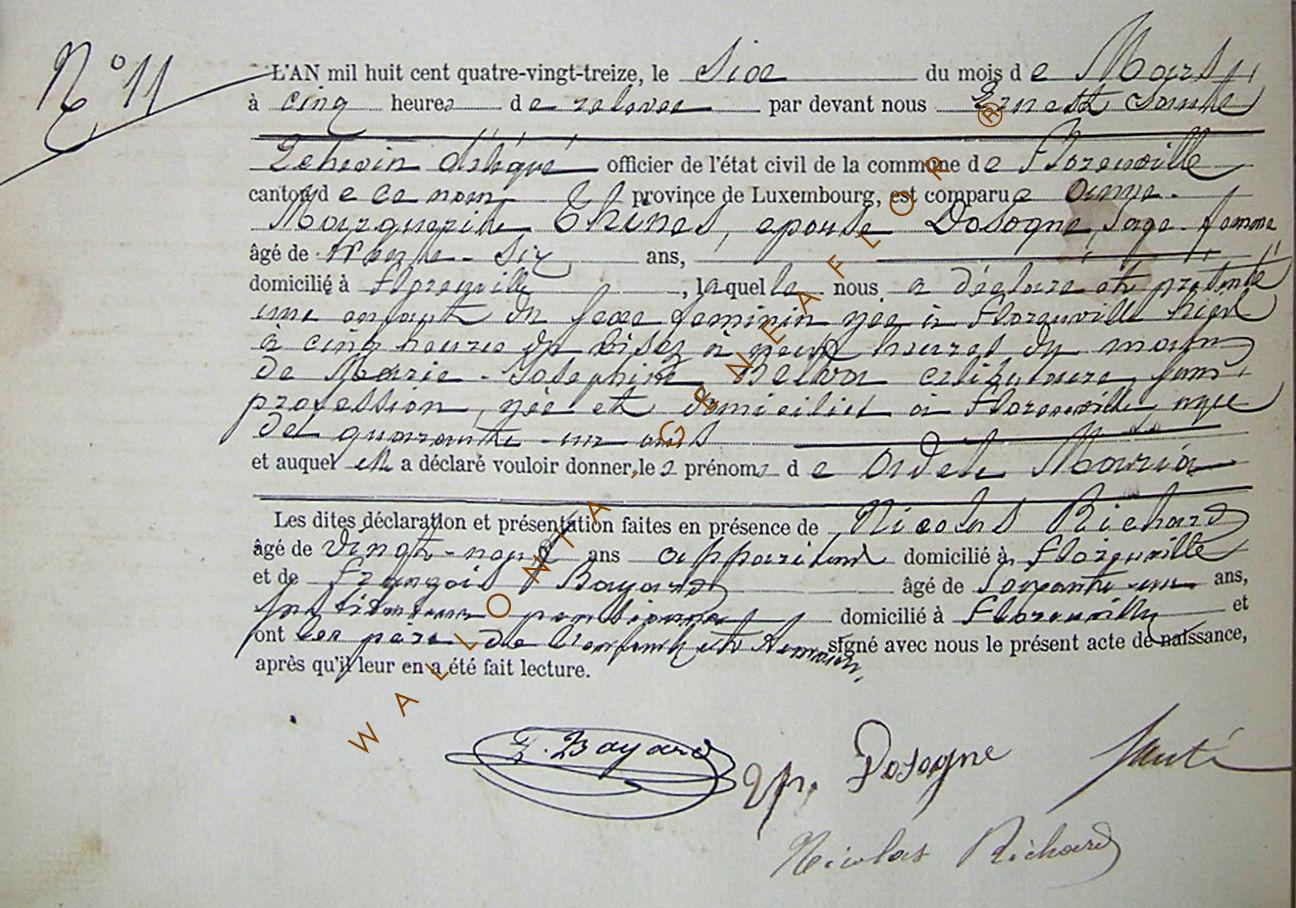 N° 11
L'AN mil huit cent quatre-vingt-treize, le six du mois de Mars
à cinq heures de relevée par devant nous Ernest Santé
Echevin délégué officier de l'état civil de la commune de Florenville
canton de ce nom province de Luxembourg, est comparue
Marguerite Thines, épouse Dosogne, sage-femme
âgé de trente-six ans,
domicilié à Florenville, laquelle nous a déclaré et présenté
une enfant du sexe féminin née à Florenville hier
à cinq heures du à neuf heures du matin
de Marie-Joséphine célibataire, sans
profession, née et domiciliée à Florenville, âgée
de quarante-un ans
et auquel elle a déclaré vouloir donner les prénoms de Maria
Les dites déclaration et présentation faites en présence de Nicolas Richard
âgé de vingt-neuf ans appariteur domicilié à Florenville
et de François Bayard âgé de soixante-un ans,
instituteur pensionné domicilié à Florenville et
ont les père de l'enfant et témoins signé avec nous le présent acte de naissance,
après qu'il leur en a été fait lecture.
F. Bayard Ep. Dosogne Santé
Nicolas Richard
WALLONIA, GENEAFLOR ®